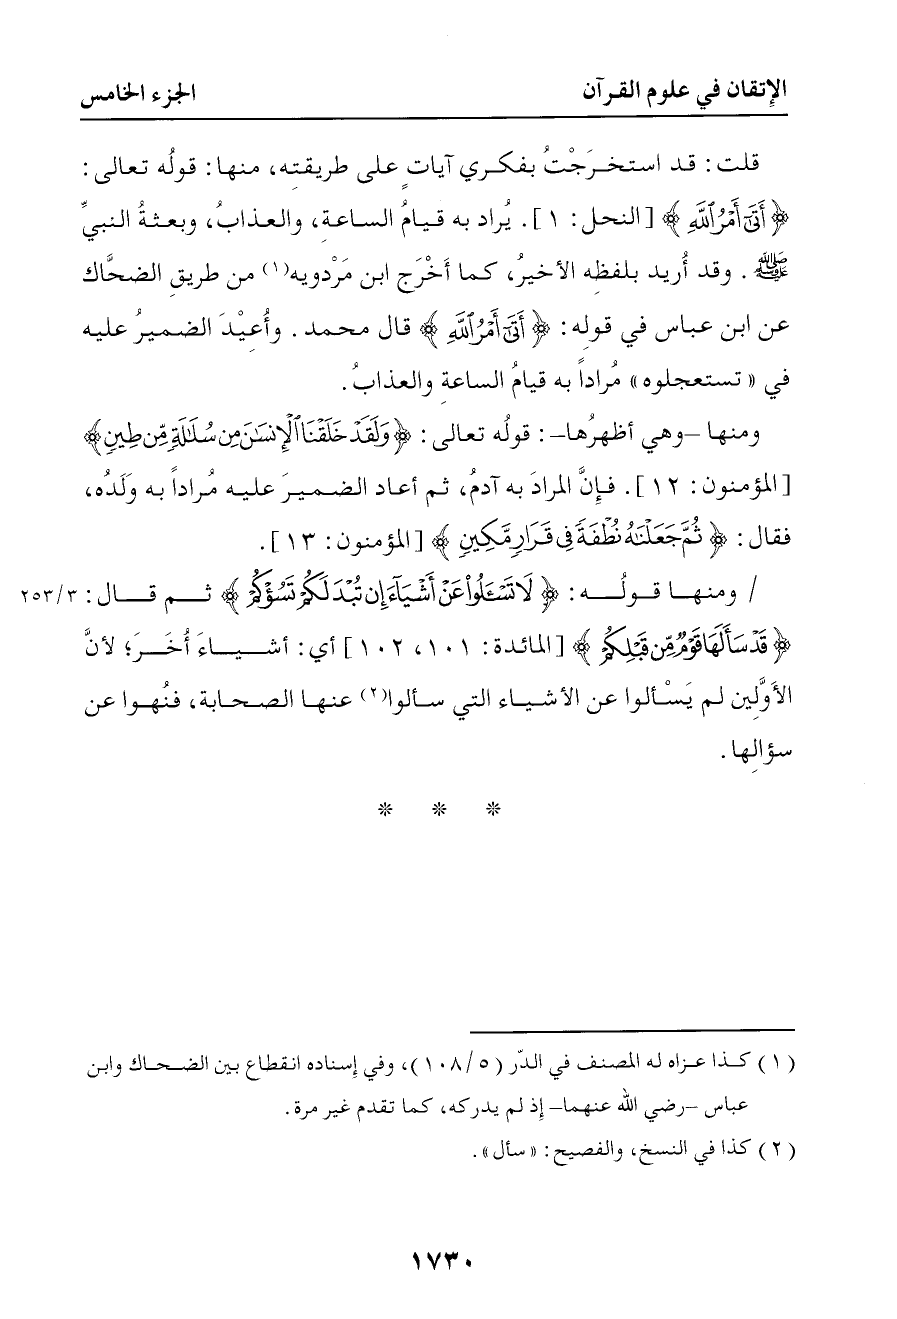 الإتقان في علوم القرآن
الجزء الخامس
قلت: قد استخرَجْتُ بفكري آياتٍ على طريقته، منها: قولُه تعالى:
﴿أَتَىٰٓ أَمْرُ ٱللَّهِ﴾ [النحل: ١]. يُراد به قيامُ الساعة، والعذابُ، وبعثةُ النبيِّ
ﷺ. وقد أُريد بلفظه الأخيرُ، كما أَخْرَج ابن مَرْدويه(١) من طريقِ الضحَّاك
عن ابن عباس في قولِه: ﴿أَتَىٰٓ أَمْرُ ٱللَّهِ﴾ قال محمد. وأُعيْدَ الضميرُ عليه
في «تستعجلوه» مُراداً به قيامُ الساعةِ والعذابُ.
ومنها –وهي أظهرُها–: قولُه تعالى: ﴿وَلَقَدْ خَلَقْنَا ٱلْإِنسَٰنَ مِن سُلَٰلَةٍ مِّن طِينٍ﴾
[المؤمنون: ١٢]. فإنَّ المرادَ به آدمُ، ثم أعاد الضميرَ عليه مُراداً به وَلَدُه،
فقال: ﴿ثُمَّ جَعَلْنَٰهُ نُطْفَةً فِى قَرَارٍ مَّكِينٍ﴾ [المؤمنون: ١٣].
/ ومنهـا قولُـه: ﴿لَا تَسْـَٔلُوا۟ عَنْ أَشْيَآءَ إِن تُبْدَ لَكُمْ تَسُؤْكُمْ﴾ ثـم قـال: ٢٥٣/٣
﴿قَدْ سَأَلَهَا قَوْمٌ مِّن قَبْلِكُمْ﴾ [المائدة: ١٠١، ١٠٢] أي: أشياءَ أُخَرَ؛ لأنَّ
الأوَّلين لم يَسْألوا عن الأشياء التي سألوا(٢) عنها الصحابة، فنُهوا عن
سؤالِها.
* * *
(١) كذا عزاه له المصنف في الدّر (١٠٨/٥)، وفي إسناده انقطاع بين الضحاك وابن
عباس –رضي الله عنهما– إذ لم يدركه، كما تقدم غير مرة.
(٢) كذا في النسخ، والفصيح: «سأل».
١٧٣٠